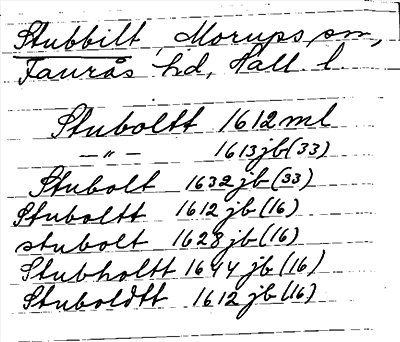 Stubbilt, Morups sn,
Faurås hd, Hall. l.
Stuboltt 1612 ml
— " — 1613 jb (33)
Stubolt 1632 jb (33)
Stuboltt 1612 jb (16)
stubolt 1628 jb (16)
Stubholtt 1644 jb (16)
Stuboldtt 1612 jb (16)